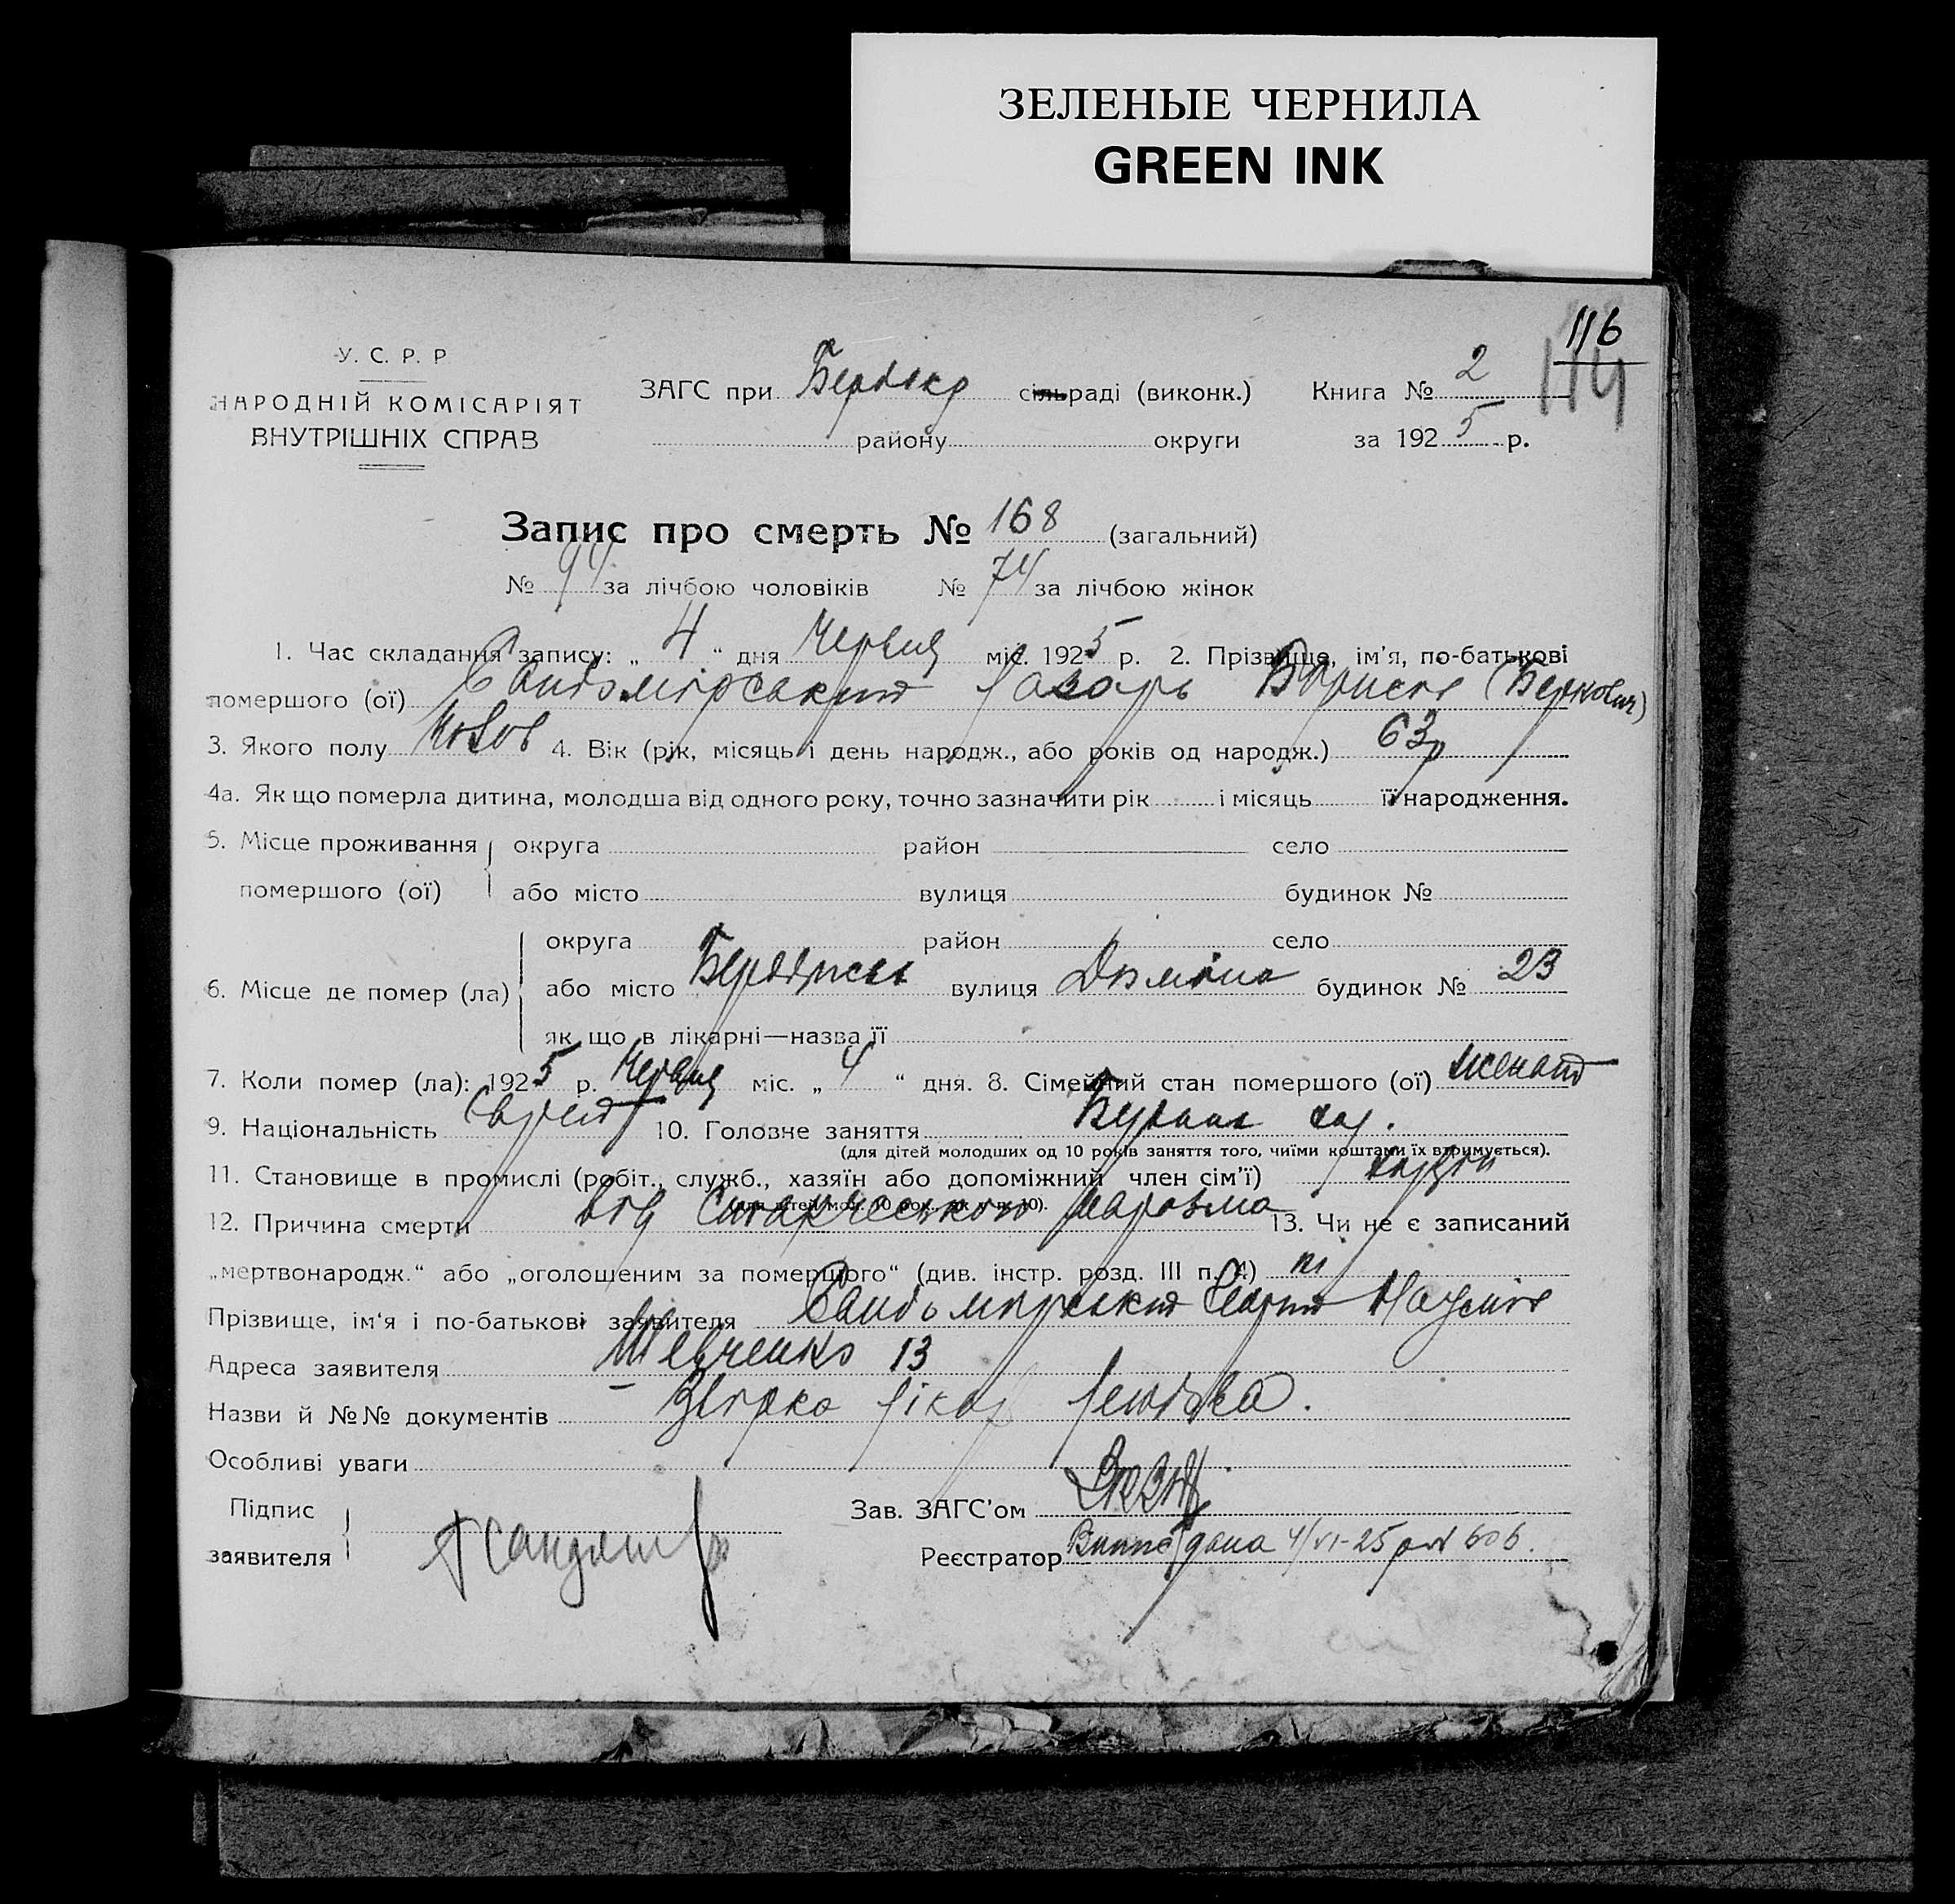 ЗЕЛЕНЫЕ ЧЕРНИЛА
GREEN INK
116
114
У. С. Р. Р
НАРОДНІЙ КОМІСАРІЯТ
ВНУТРІШНІХ СПРАВ
ЗАГС при сільраді (виконк.) Книга № 2
району округи за 1925 р.
Запис про смерть № 168 (загальний)
№ 94 за лічбою чоловіків № 74 за лічбою жінок
1. Час складання запису: „ 4 “ дня Червня міс. 1925 р. 2. Прізвище, ім’я, по-батькові
помершого (ої) Сандомірський Лазарь (Беркович)
3. Якого полу 4. Вік (рік, місяць і день народж., або років од народж.) 63р
4а. Як що померла дитина, молодша від одного року, точно зазначити рік і місяць її народження.
5. Місце проживання округа район село
помершого (ої) або місто вулиця будинок №
округа район село
6. Місце де помер (ла) або місто Бердичів вулиця будинок № 23
як що в лікарні—назва її
7. Коли помер (ла): 1925 р. Червня міс. „ 4 “ дня. 8. Сімейний стан помершого (ої) женат
9. Національність Єврей 10. Головне заняття
(для дітей молодших од 10 років заняття того, чиїми коштами їх втримується).
11. Становище в промислі (робіт., служб., хазяїн або допоміжний член сім’ї)
(для дітей мол. 10 рок. як у п. 10).
12. Причина смерти від Старческого маразма 13. Чи не є записаний
„мертвонародж.“ або „оголошеним за помершого“ (див. інстр. розд. III п. 4) ні
Прізвище, ім‘я і по-батькові заявителя Сандомірський
Адреса заявителя Шевченко 13
Назви й №№ документів лікар
Особливі уваги
Підпис Зав. ЗАГС’ом
заявителя Реєстратор 4/VI-25